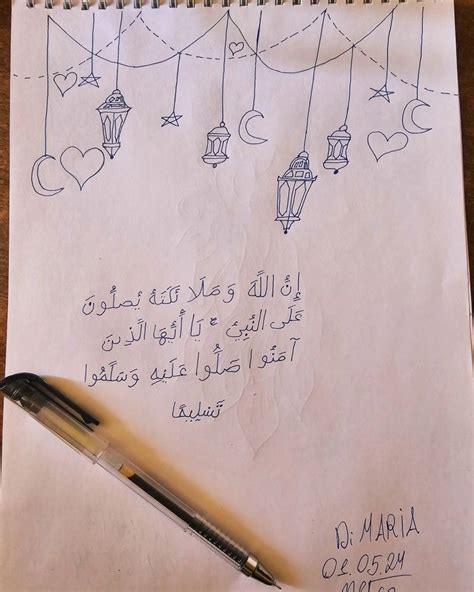 إِنَّ اللَّهَ وَمَلَائِكَتَهُ يُصَلُّونَ
عَلَى النَّبِيِّ ۚ يَا أَيُّهَا الَّذِينَ
آمَنُوا صَلُّوا عَلَيْهِ وَسَلِّمُوا
تَسْلِيمًا
Di MARiA
01.05.24